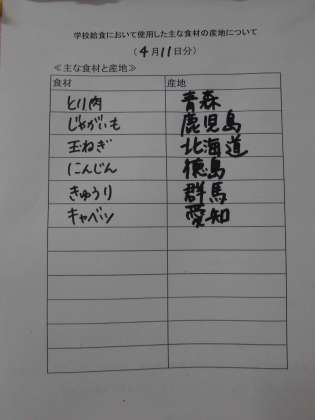 学校給食において使用した主な食材の産地について
(4月11日分)
≪主な食材と産地≫
食材 産地
とり肉 青森
じゃがいも 鹿児島
玉ねぎ 北海道
にんじん 徳島
きゅうり 群馬
キャベツ 愛知